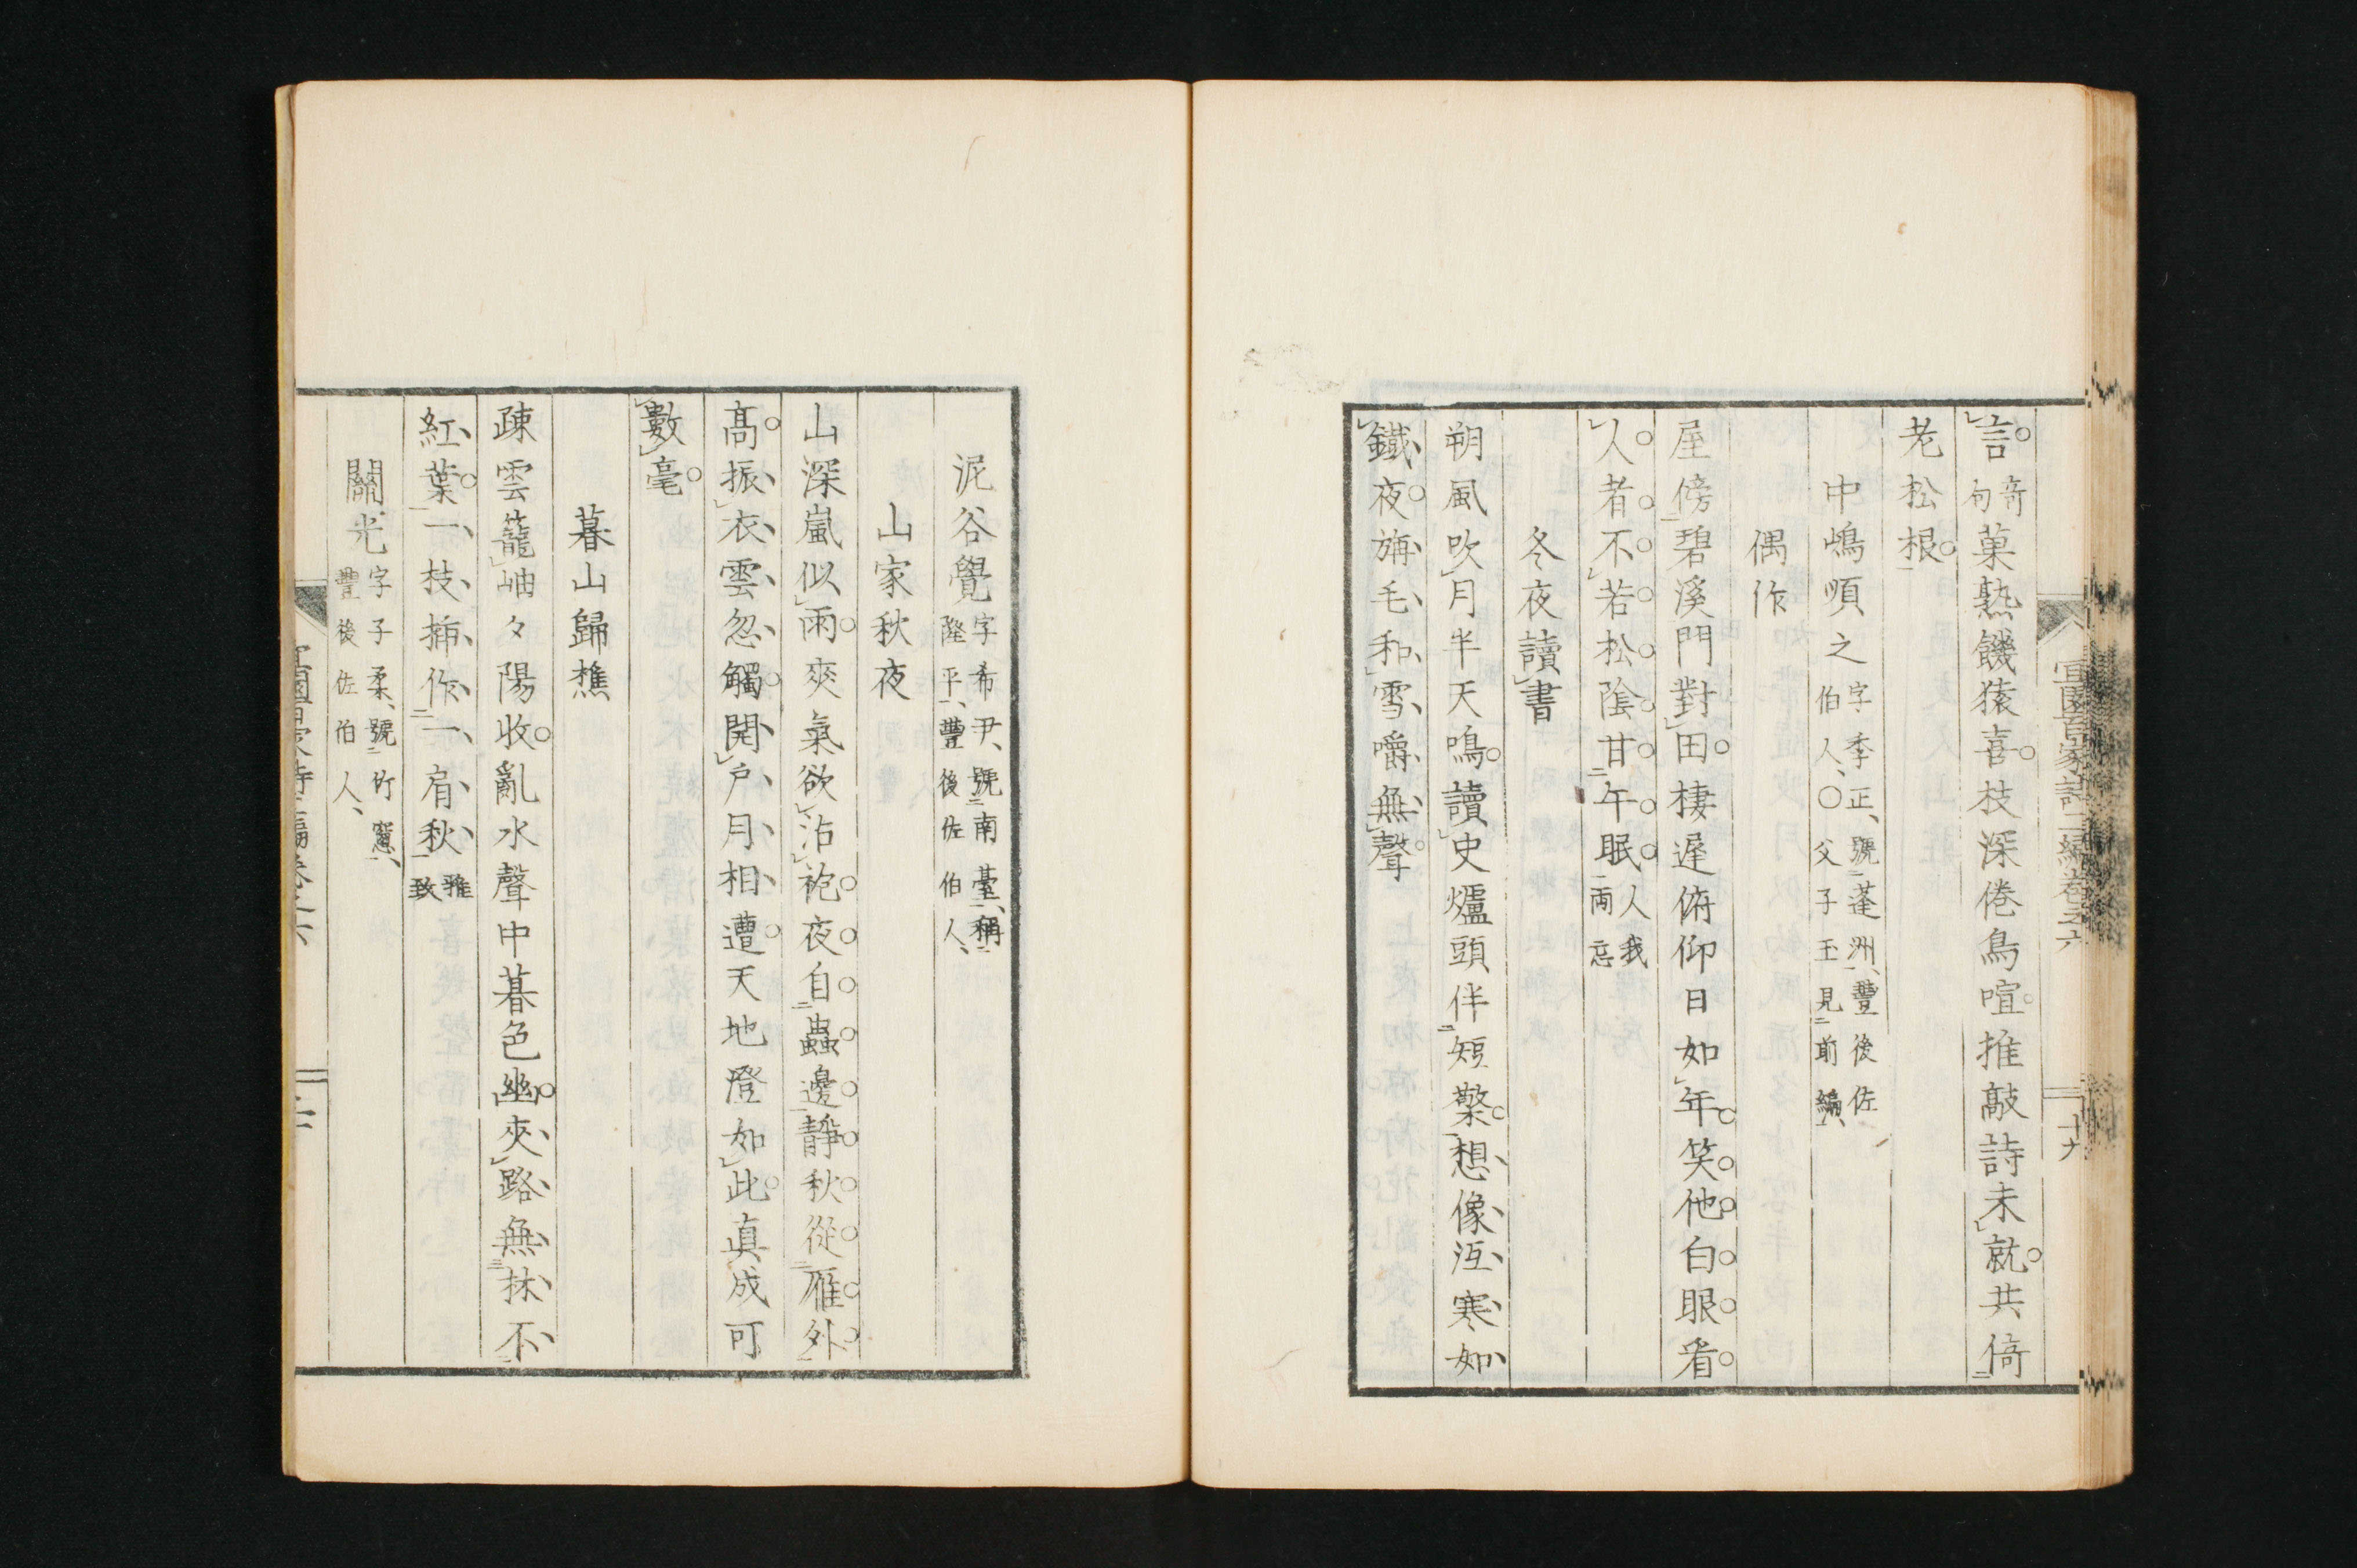 宜園百家詩二編卷之六 十九
言奇句菓熟饑猿喜枝深倦鳥喧推敲詩未就共倚
老松根
中嶋順之字季正、號蓬洲、豐後佐伯人、〇父子玉見前編、
偶作
屋傍碧溪門對田棲遲俯仰日如年笑他白眼看
人者不若松陰甘午眠人我両忘
冬夜讀書
朔風吹月半天鳴讀史爐頭伴短檠想像沍寒如
鐵夜旃毛和雪嚼無聲
泥谷覺字希尹、號南臺、稱隆平、豐後佐伯人、
山家秋夜
山深嵐似雨爽氣欲沾袍夜自蟲邊靜秋從雁外
高振衣雲忽觸開戶月相遭天地澄如此真成可
數毫
暮山歸樵
疎雲籠岫夕陽收亂水聲中暮色幽夾路無抹不
紅葉一枝揷作一肩秋雅致
關光字子柔、號竹窻、豐後佐伯人、